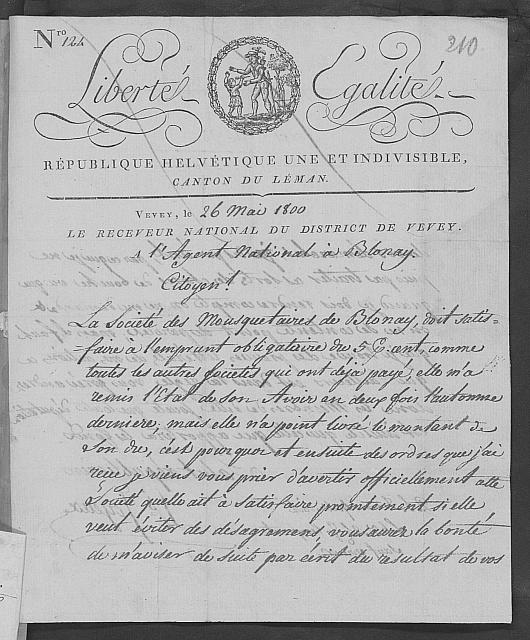 Nro 124
210
Liberté Egalité
RÉPUBLIQUE HELVÉTIQUE UNE ET INDIVISIBLE,
CANTON DU LÉMAN.
VEVEY, le 26 Mai 1800
LE RECEVEUR NATIONAL DU DISTRICT DE VEVEY.
A l'Agent National à Blonay.
Citoyen!
La Société des Mousquetaires de Blonay, doit satis-
faire à l'emprunt obligatoire du 5 P. cent, comme
toutes les autres societés qui ont déjà payé, elle m'a
remis l'Etat de Son Avoir en deux fois l'automne
derniere, mais elle n'a point livré le montant de
Son dre, c'est pourquoy et ensuite des ordres que j'ai
reçu je viens vous prier d'avertir officiellement cette
Societé quelle ait à Satisfaire promtement si elle
veut éviter des désagremens, vous aurez la bonté
de m'aviser de suite par écrit du resultat de vos